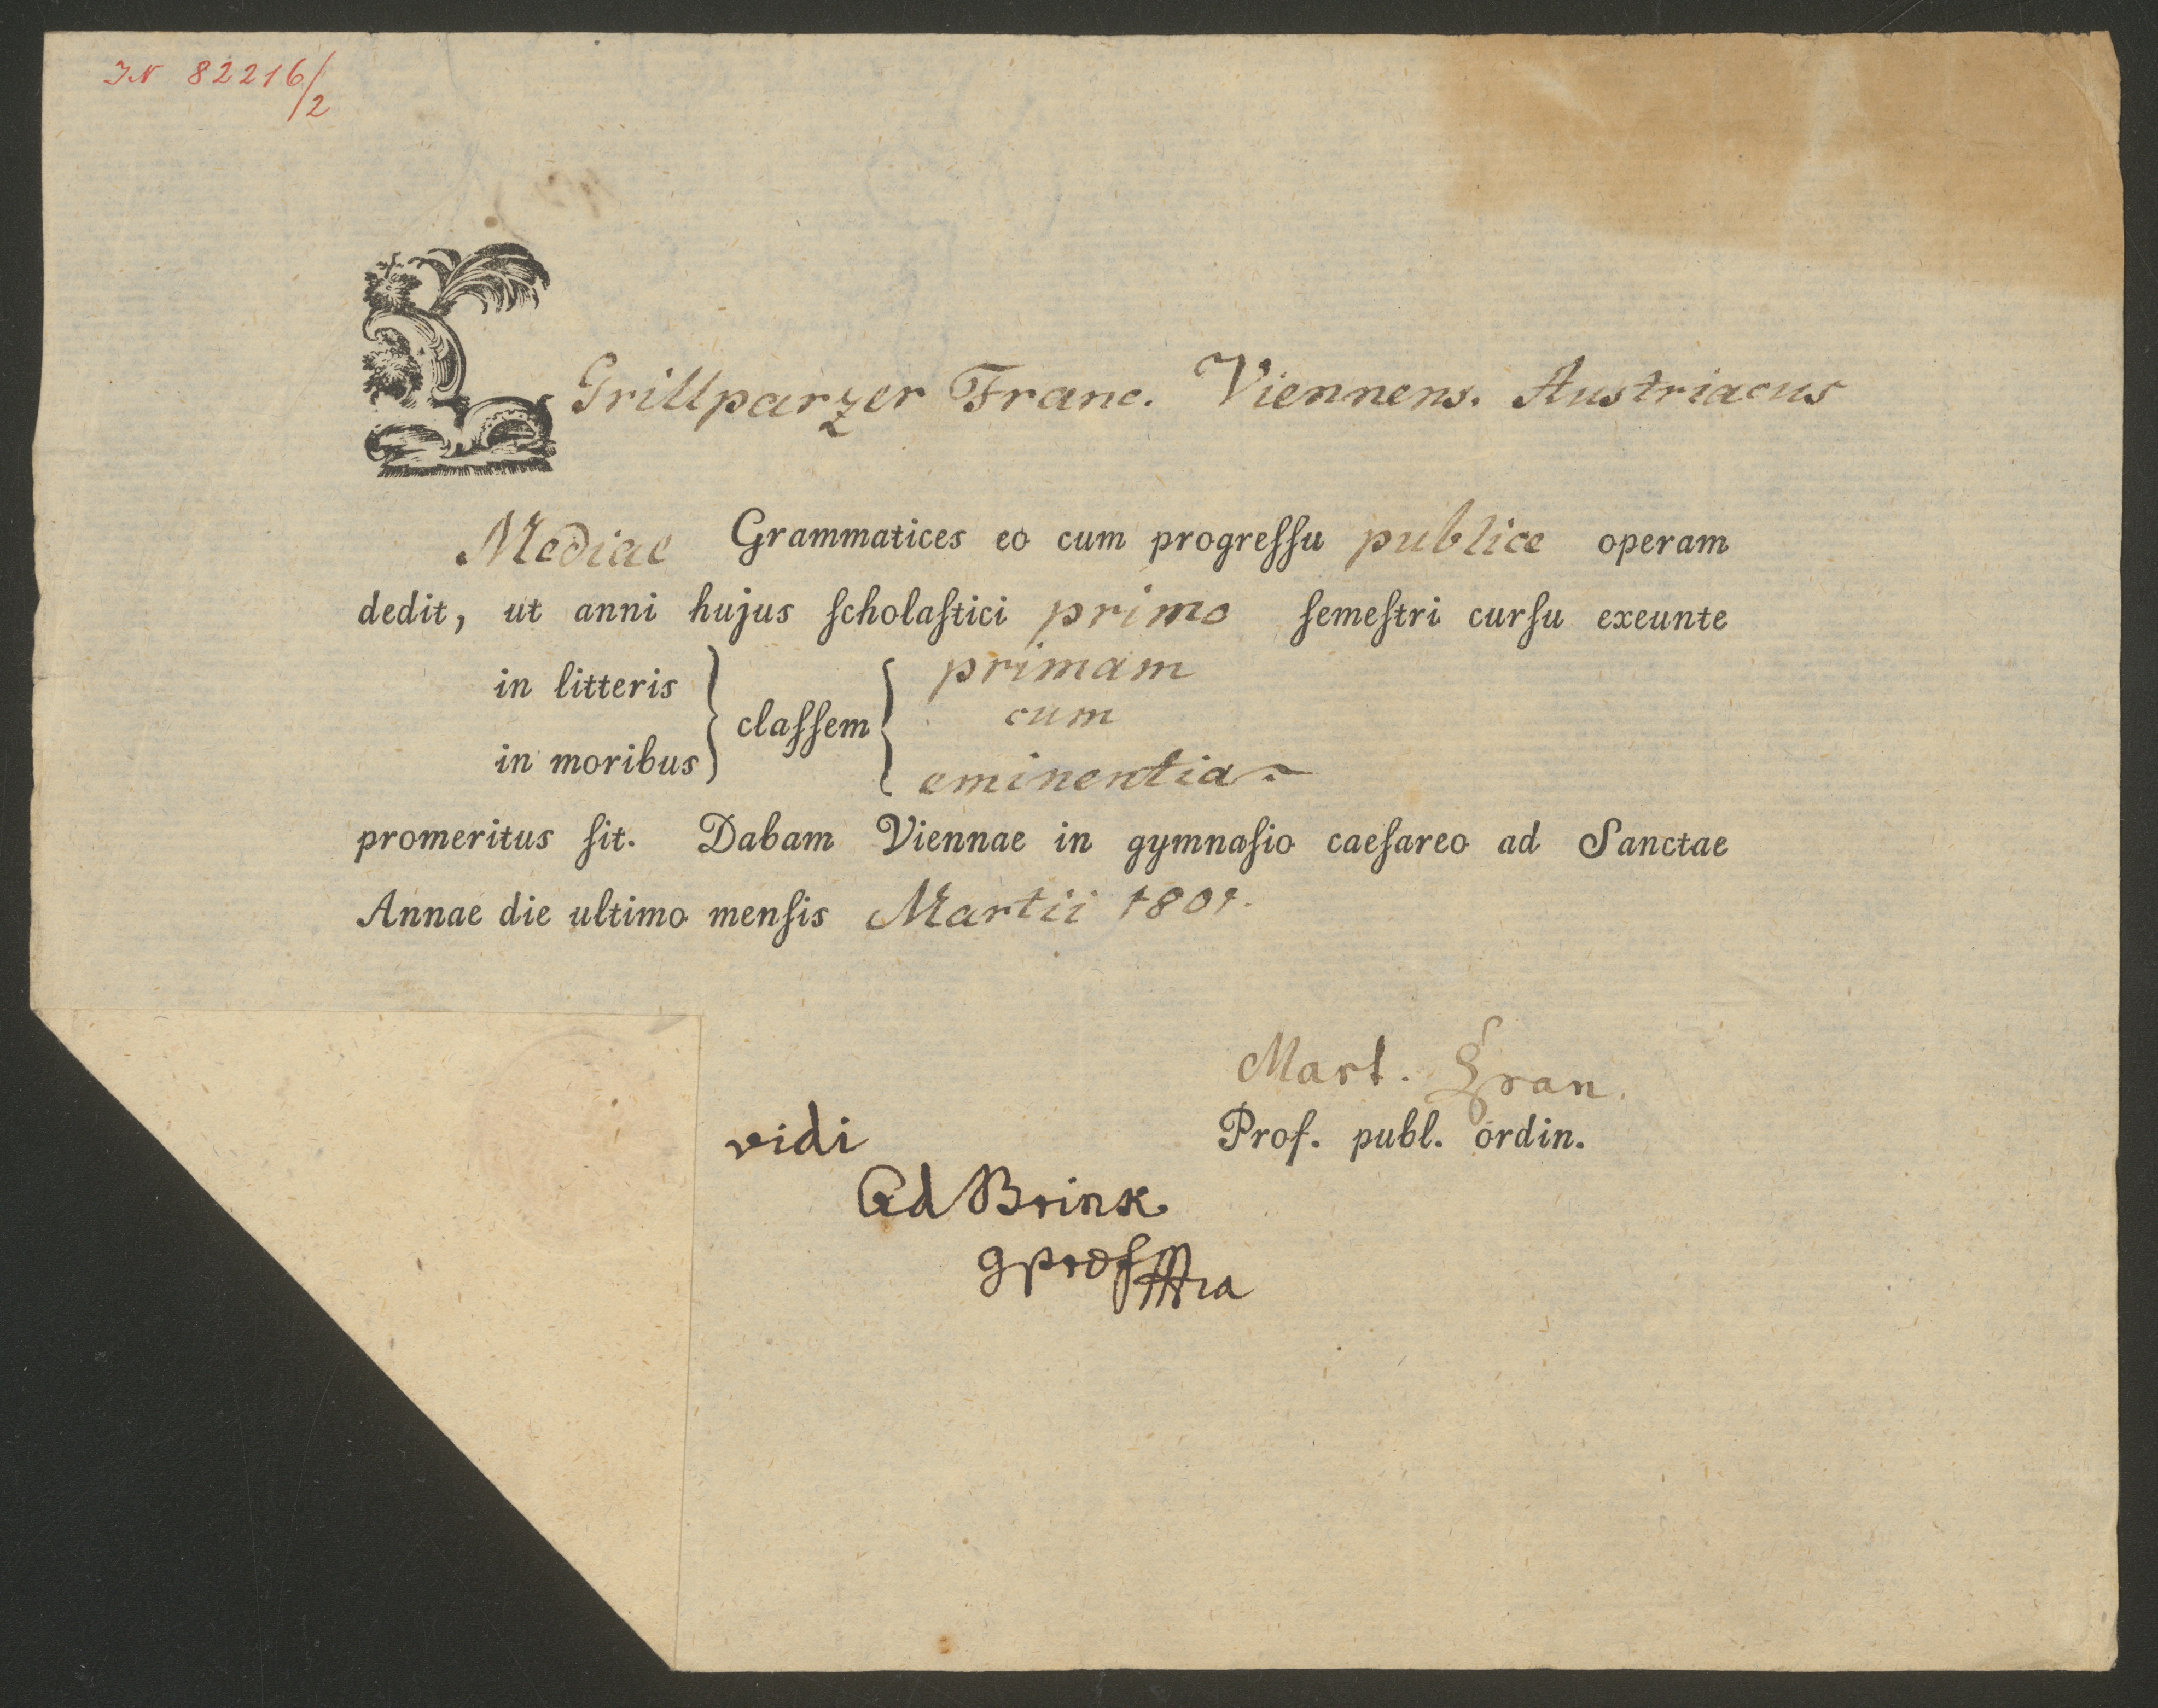 IN 82216/2
Grillparzer Franc. Viennens. Austriacus
Mediae Grammatices eo cum progreſſu publice operam
dedit, ut anni hujus ſcholaſtici primo ſemeſtri curſu exeunte
in litteris } claſſem { primam
cum
in moribus eminentia
promeritus ſit. Dabam Viennae in gymnaſio caeſareo ad Sanctae
Annae die ultimo menſis Martii 1801.
Mart. Gran.
Prof. publ. ordin.
vidi
Ad Brink